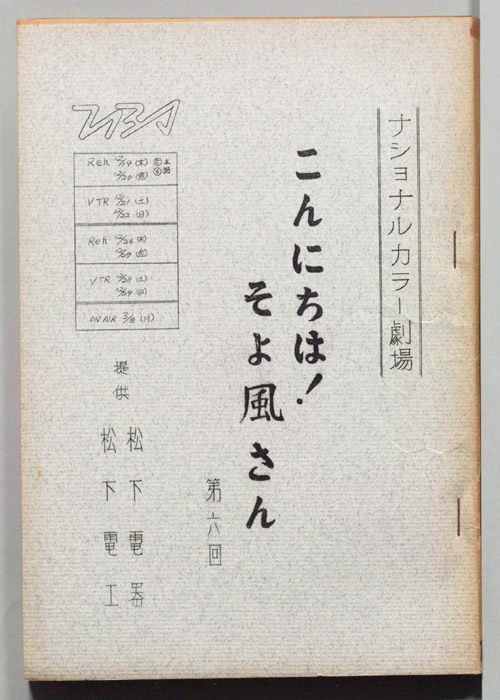 ナショナルカラー劇場
こんにちは!
そよ風さん
第六回
Reh 12/19 (木)
12/20 (金)
VTR 12/21 (土)
12/22 (日)
Reh 12/26 (木)
12/27 (金)
VTR 12/28 (土)
12/29 (日)
ON AIR 2/3 (月)
提供
松下電器
松下電工